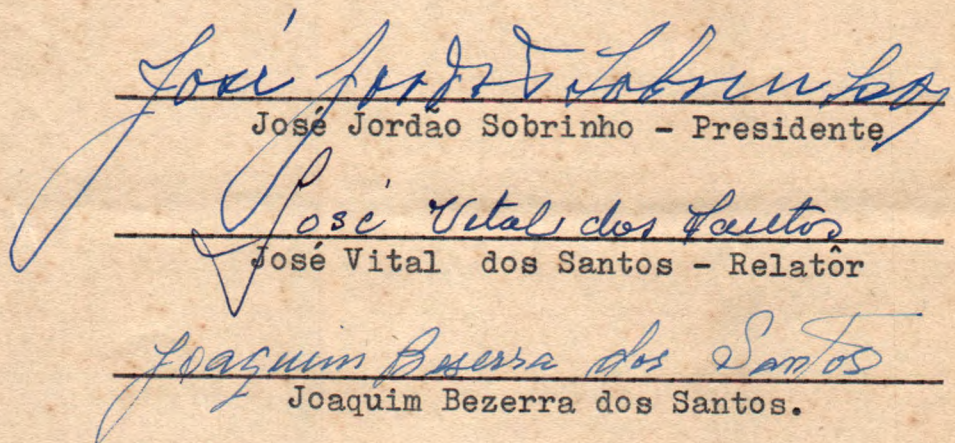 José Jordão Sobrinho
José Jordão Sobrinho - Presidente
José Vital dos Santos
José Vital dos Santos - Relatôr
Joaquim Beserra dos Santos
Joaquim Bezerra dos Santos.